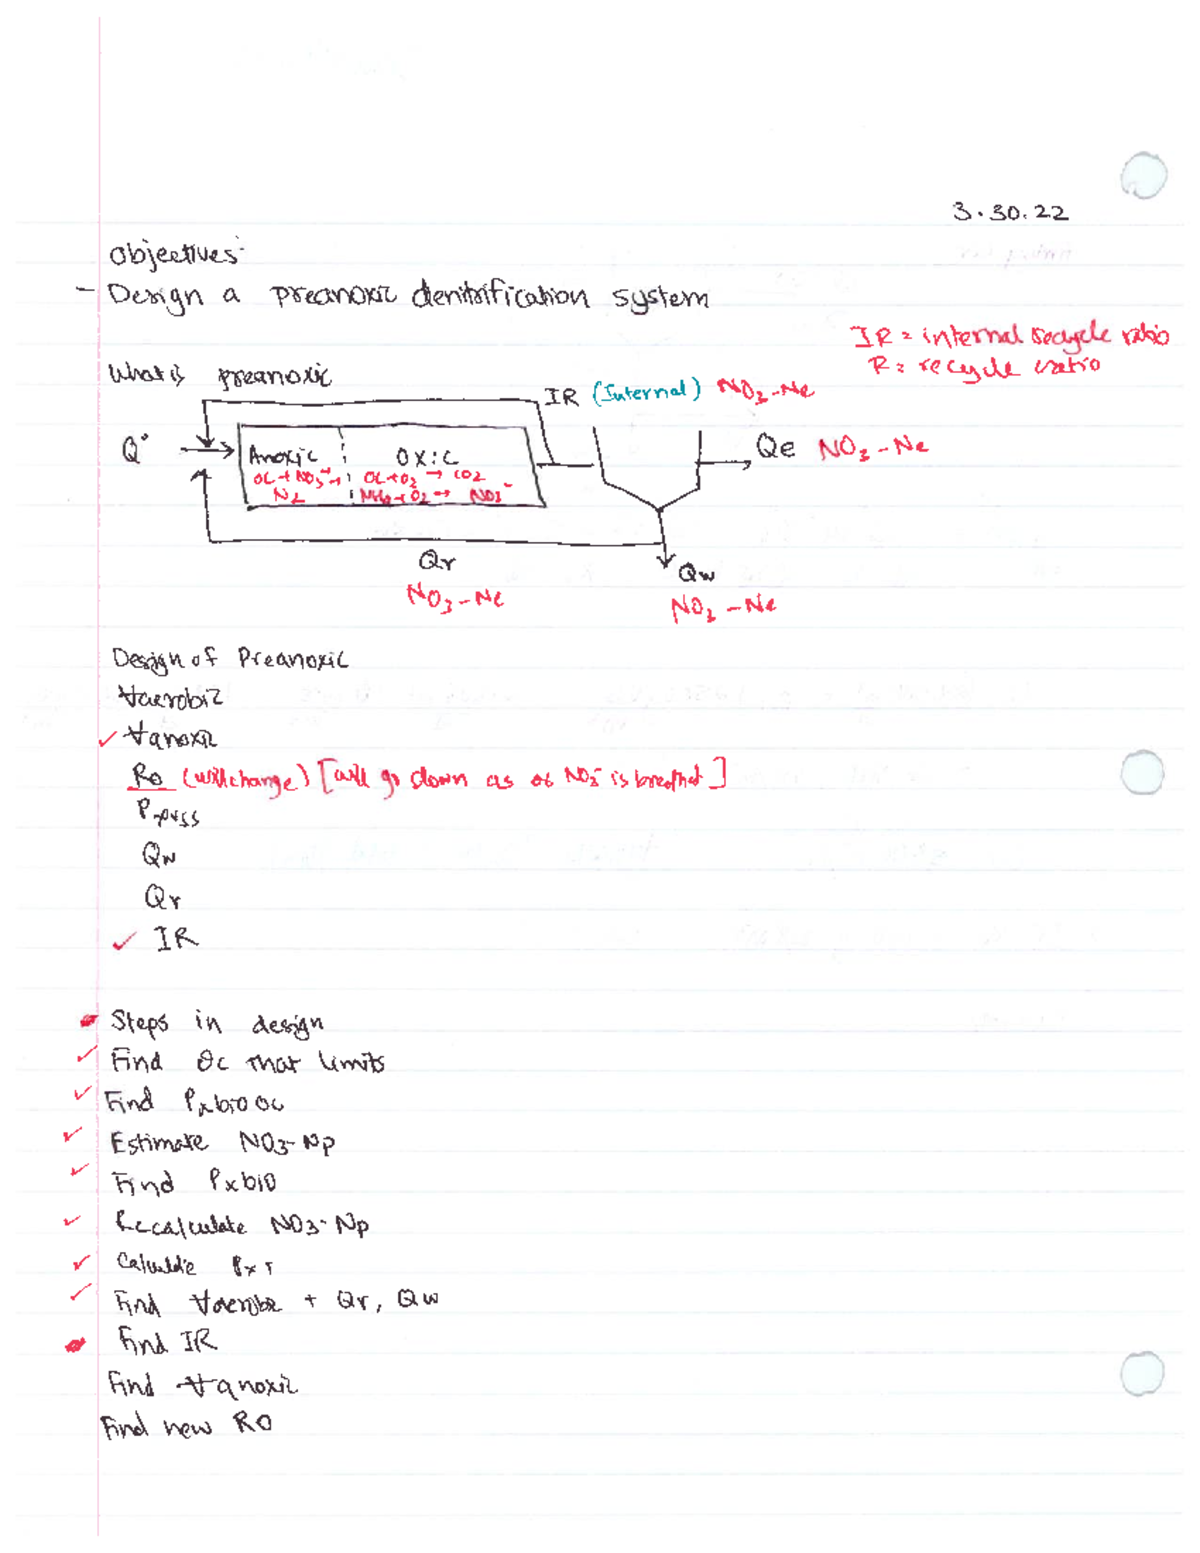 3.30.22
Objectives:
- Design a preanoxic denitrification system
IR = internal recycle ratio
R = recycle ratio
What is preanoxic
IR (Internal) NO3-Ne
Q°
Anoxic
OXiC
Qe NO3-Ne
OC + NO3- →
N2
OC + O2 → CO2
+ O2 → NO3-
Qr
NO3-Ne
Qw
NO3-Ne
Design of Preanoxic
Vaerobic
✓ Vanoxic
Ro (will change) [will go down as NO3- is]
Qw
Qr
✓ IR
Steps in design
✓ Find θc that limits
✓ Find Pxbio
✓ Estimate NO3-Np
✓ Find Pxbio
✓ Recalculate NO3-Np
✓ Calculate PxT
✓ Find Vaerobic + Qr, Qw
Find IR
Find Vanoxic
Find new RO